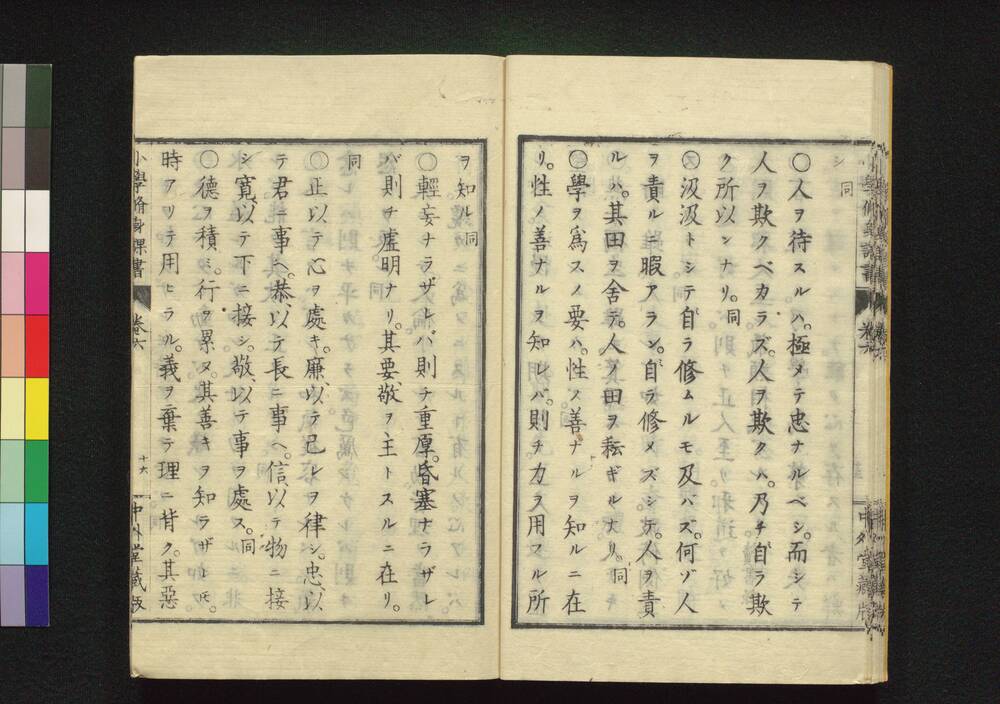 シ 同
○人ヲ待スルハ。極メテ忠ナルベシ。而シテ
人ヲ欺クベカラズ。人ヲ欺クハ。乃チ自ラ欺
ク所以ンナリ。同
○汲汲トシテ自ラ修ムルモ及バズ。何ゾ人
ヲ責ルニ暇アラン。自ラ修メズシテ。人ヲ責
ルハ。其田ヲ舍テ。人ノ田ヲ耘ギルナリ。同
○學ヲ爲スノ要ハ。性ノ善ナルヲ知ルニ在
リ。性ノ善ナルヲ知レバ。則チ力ヲ用フル所
ヲ知ル 同
○輕妄ナラザレバ則チ重厚。昏塞ナラザレ
バ則チ虛明ナリ。其要、敬ヲ主トスルニ在リ。
同
○正以テ心ヲ處キ。廉以テ己レヲ律シ。忠、以
テ君ニ事ヘ。恭、以テ長ニ事ヘ。信、以テ物ニ接
シ、寛、以テ下ニ接シ。敬、以テ事ヲ處ス。同
○德ヲ積ミ。行ヲ累ヌ。其善キヲ知ラザレ𪜈。
時アリテ用ヒラル。義ヲ棄テ理ニ背ク。其惡
小學脩身課書 卷六 十六 中外堂藏版